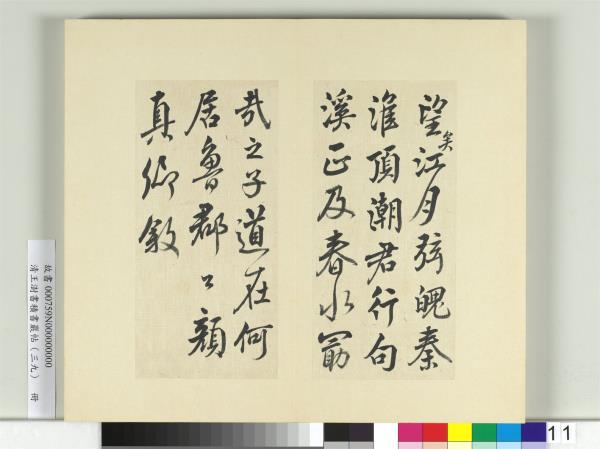 望矣江月弦魄秦
淮頂潮君行句
溪正及春水勗
哉之子道在何
居魯郡公顏
真卿敘
故書000759N000000000
清王澍書積書巖帖（三九） 冊
11